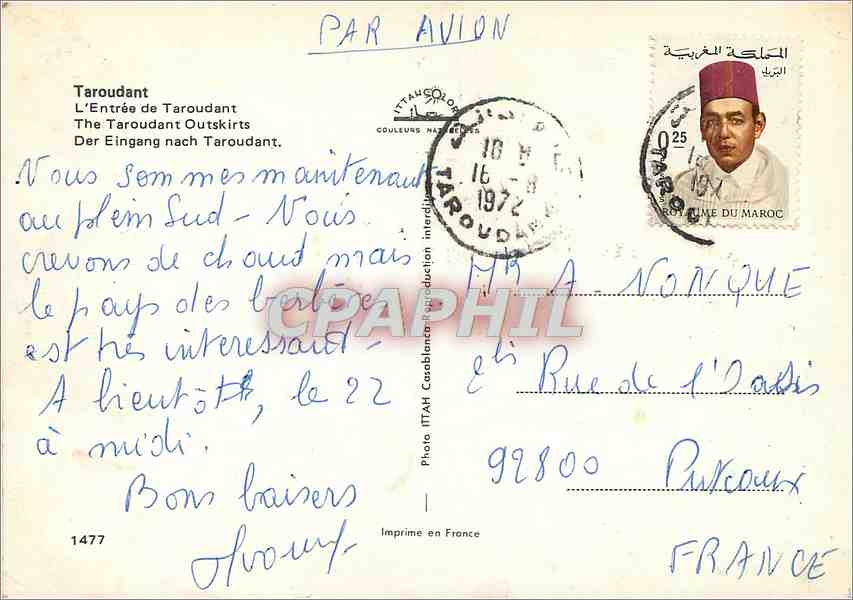 PAR AVION
Taroudant
L'Entrée de Taroudant
The Taroudant Outskirts
Der Eingang nach Taroudant.
ITTAHCOLOR
COULEURS NATURELLES
المملكة المغربية
البريد
0,25
ROYAUME DU MAROC
16 -8
1972
TAROUDANT
Vous sommes maintenant
au plein Sud - Nous
crevons de chaud mais
le pays des berbères
est très interessant -
A bientôt, le 22
à midi.
Bons baisers
Photo ITTAH Casablanca Reproduction interdite
CPAPHIL
MR A - NONQUE
Rue de l'Oasis
92800 Puteaux
FRANCE
1477
Imprime en France